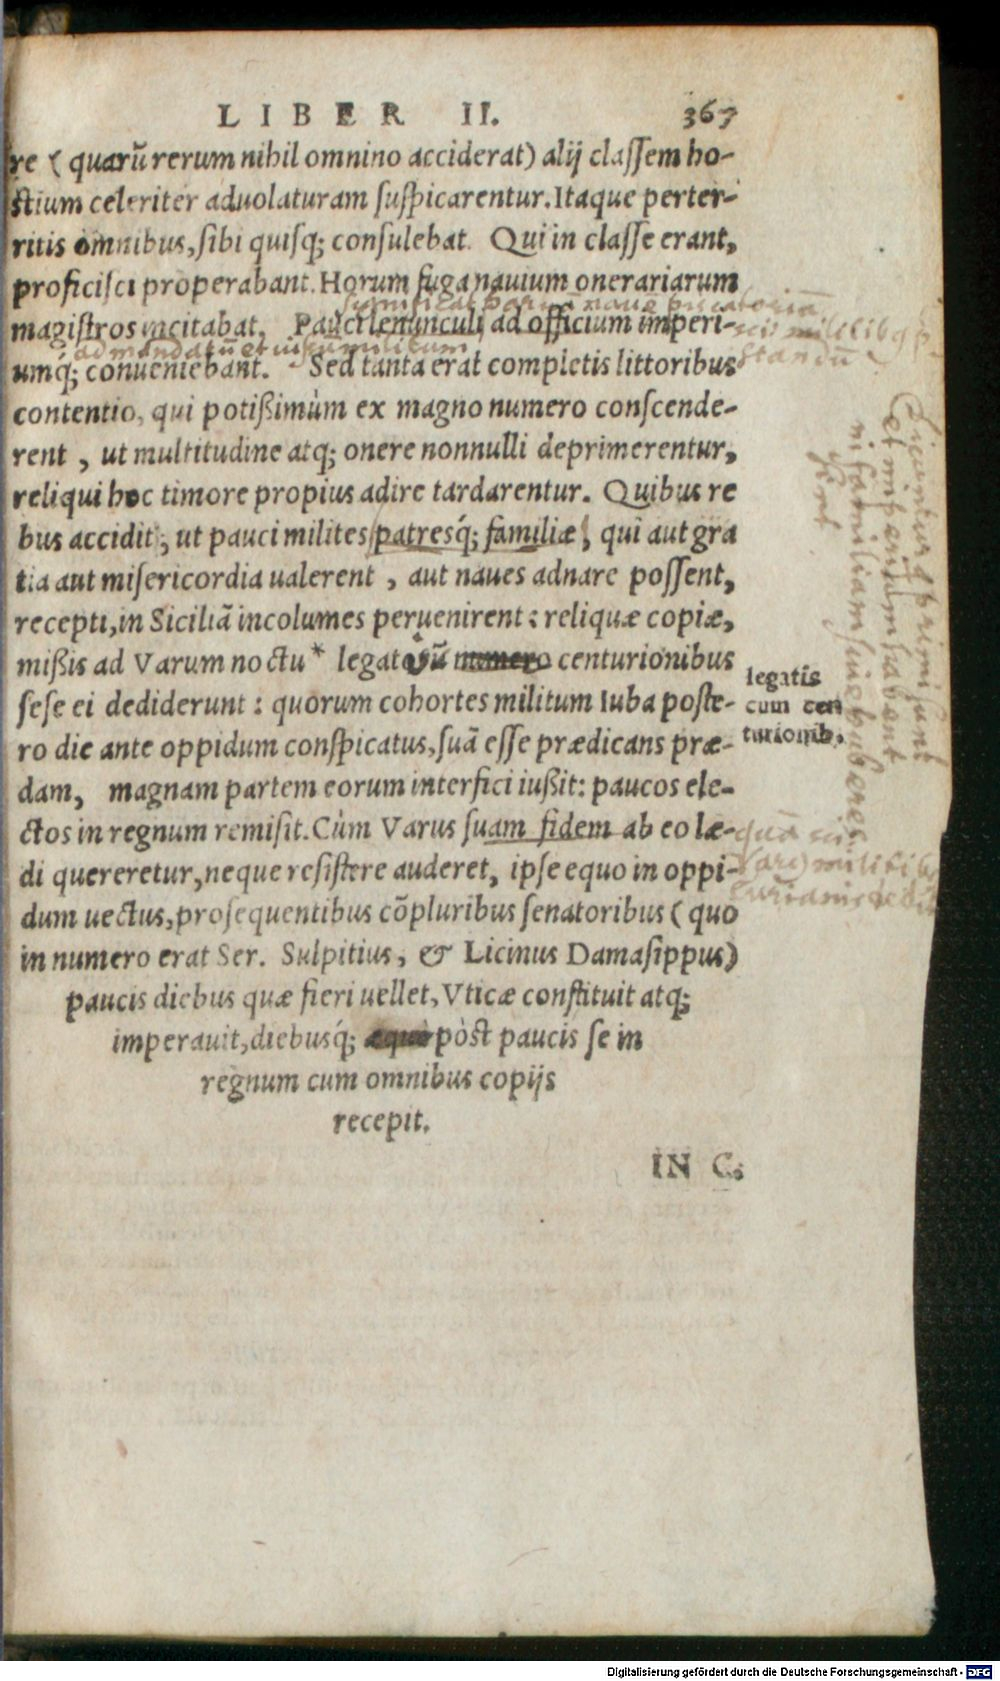 LIBER II. 367
re (quarū rerum nihil omnino acciderat) alij classem ho-
stium celeriter aduolaturam suspicarentur. Itaque perter-
ritis omnibus, sibi quisq; consulebat. Qui in classe erant,
proficisci properabant. Horum fuga nauium onerariarum
magistros incitabat. Pauci lenunculi ad officium imperi-
ad mandatū et militum
umq́; conueniebant. Sed tanta erat completis littoribus
contentio, qui potißimùm ex magno numero conscende-
rent, ut multitudine atq; onere nonnulli deprimerentur,
reliqui hoc timore propius adire tardarentur. Quibus re
bus accidit, ut pauci milites patresq́; familiæ, qui aut gra
tia aut misericordia ualerent, aut naues adnare possent,
recepti, in Siciliā incolumes peruenirent: reliquæ copiæ,
mißis ad Varum noctu* legatorū numero centurionibus
legatis
cum cen
turionib.
sese ei dediderunt: quorum cohortes militum Iuba poste-
ro die ante oppidum conspicatus, suā esse prædicans præ-
dam, magnam partem eorum interfici iußit: paucos ele-
ctos in regnum remisit. Cùm Varus suam fidem ab eo læ-
di quereretur, neque resistere auderet, ipse equo in oppi-
dum uectus, prosequentibus cōpluribus senatoribus (quo
in numero erat Ser. Sulpitius, & Licinus Damasippus)
paucis diebus quæ fieri uellet, Vticæ constituit atq;
imperauit, diebusq́; æquè pòst paucis se in
regnum cum omnibus copijs
recepit.
IN C.
Digitalisierung gefördert durch die Deutsche Forschungsgemeinschaft - DFG